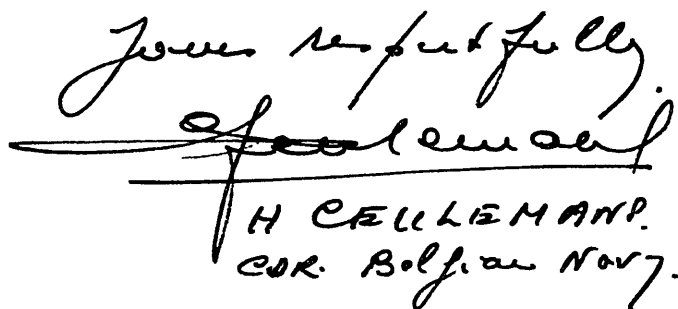 Yours respectfully.
Ceulemans
H CEULEMANS.
CDR. Belgian Navy.